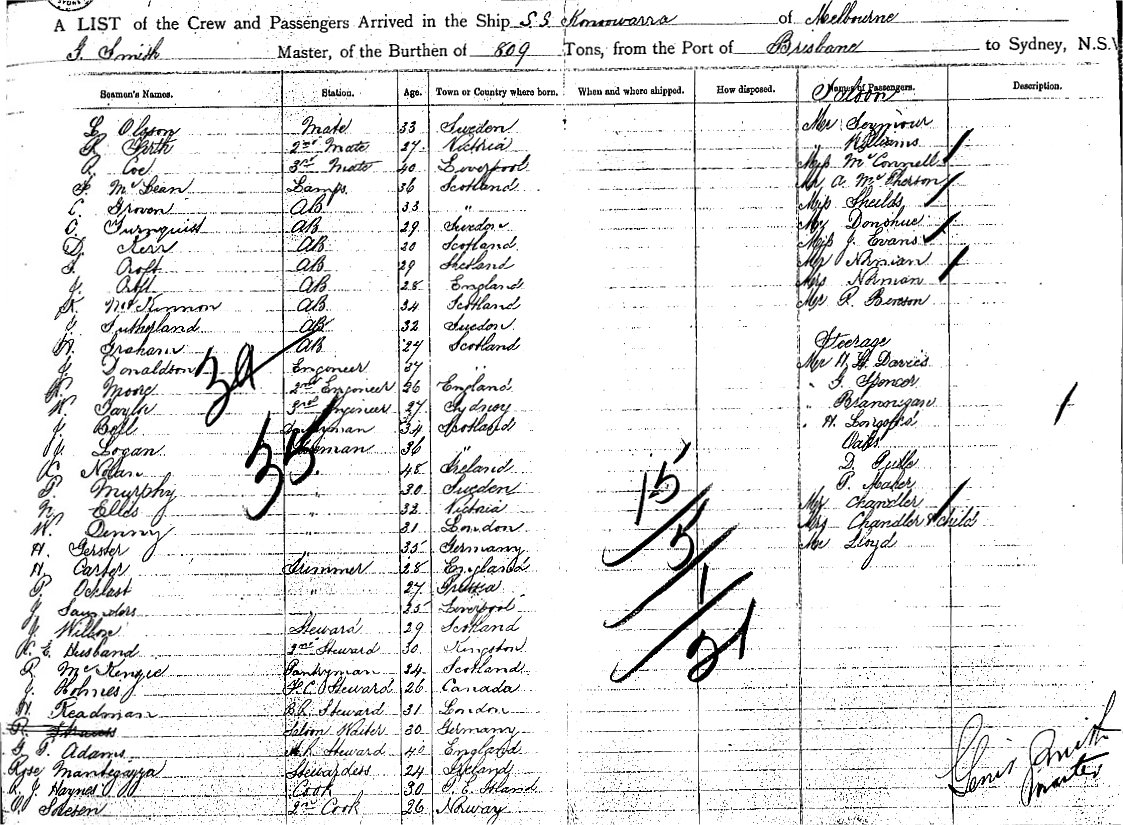 A LIST of the Crew and Passengers Arrived in the Ship S.S. Konoowarra of Melbourne
G. Smith Master, of the Burthen of 809 Tons, from the Port of Brisbane to Sydney, N.S.
Seamen's Names. Station. Age. Town or Country where born. When and where shipped. How disposed. Names of Passengers. Description.
Saloon
L Olgson Mate 33 Sweden Mr Seymour
Firth 2nd Mate 27 Victoria " Williams
R. Coe 3rd Mate 40 Liverpool Miss McConnell
F. McLean Lamps 36 Scotland Mr A. McPherson
C. Groven AB 33 " Miss Sheilds
C. Turnquist AB 29 Sweden Mr Donohue
D. Kerr AB 20 Scotland Miss J. Evans
Croft AB 29 Shetland Mr Norman
J. Croft AB 28 England Mrs Norman
K. McKinnon AB 34 Scotland Mr R. Benson
J. Sutherland AB 32 Sweden
Graham AB 27 Scotland Steerage
J. Donaldson Engineer 37 " Mr H. H. Davies
Moore 2nd Engineer 26 England " G. Spencer
W. Taylor 3rd Engineer 27 Sydney Brannigan
J. Bell 34 Scotland " H.
J. Logan Fireman 36 " Oaks
Nolan " 48 Ireland D.
P. Murphy " 30 Sweden P. Maher
Ellis " 32 Victoria Mr Chandler
W. Denny " 31 London Mrs Chandler & child
H. Gerster " 35 Germany Mr Lloyd
H. Carter Trimmer 28 England
P. " 27 Prussia
J. Saunders " 25 Liverpool
J. Wilson Steward 29 Scotland
E. Husband 2nd Steward 30 Kingston
R. McKenzie Pantryman 24 Scotland
J. Holmes F.C. Steward 26 Canada
H. Readman B.R. Steward 31 London
Saloon Waiter 30 Germany
G. P. Adams Steward 40 England
Rose Mantegazza Stewardess 24 Ireland
R. J. Haynes Cook 30 P. E. Island
Solesen 2nd Cook 26 Norway
34
35
15
5
1
21
Smith
Master